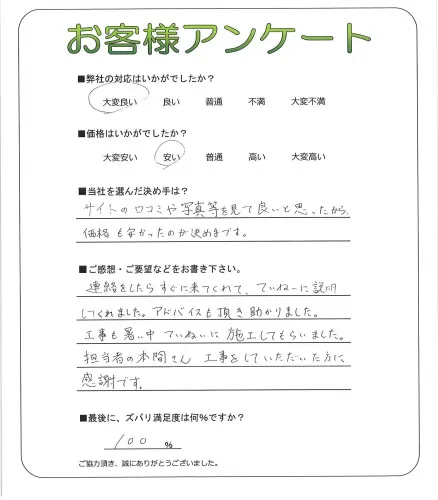 お客様アンケート
■弊社の対応はいかがでしたか?
大変良い 良い 普通 不満 大変不満
■価格はいかがでしたか?
大変安い 安い 普通 高い 大変高い
■当社を選んだ決め手は?
サイトの口コミや写真等を見て良いと思ったから。
価格も安かったのが決め手です。
■ご感想・ご要望などをお書き下さい。
連絡をしたらすぐに来てくれて、ていねいに説明
してくれました。アドバイスも頂き助かりました。
工事も暑い中ていねいに施工してもらいました。
担当者の本間さん 工事をしていただいた方に
感謝です。
■最後に、ズバリ満足度は何%ですか?
100 %
ご協力頂き、誠にありがとうございました。